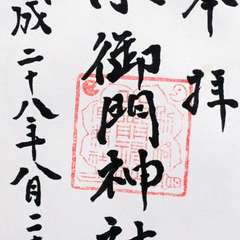 奉拝
御門神社
成二十八年八月二